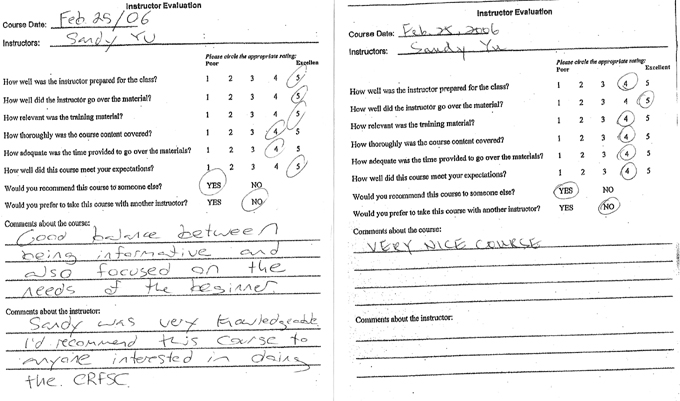 Instructor Evaluation
Course Date: Feb 25/06
Instructors: Sandy Yu
Please circle the appropriate rating:
Poor Excellen
How well was the instructor prepared for the class? 1 2 3 4 5
How well did the instructor go over the material? 1 2 3 4 5
How relevant was the training material? 1 2 3 4 5
How thoroughly was the course content covered? 1 2 3 4 5
How adequate was the time provided to go over the materials? 1 2 3 4 5
How well did this course meet your expectations? 1 2 3 4 5
Would you recommend this course to someone else? YES NO
Would you prefer to take this course with another instructor? YES NO
Comments about the course:
Good balance between
being informative and
also focused on the
needs of the beginner.
Comments about the instructor:
Sandy was very knowledgeable
I'd recommend this course to
anyone interested in doing
the CRFSC.
Instructor Evaluation
Course Date: Feb. 25, 2006
Instructors: Sandy Yu
Please circle the appropriate rating:
Poor Excellent
How well was the instructor prepared for the class? 1 2 3 4 5
How well did the instructor go over the material? 1 2 3 4 5
How relevant was the training material? 1 2 3 4 5
How thoroughly was the course content covered? 1 2 3 4 5
How adequate was the time provided to go over the materials? 1 2 3 4 5
How well did this course meet your expectations? 1 2 3 4 5
Would you recommend this course to someone else? YES NO
Would you prefer to take this course with another instructor? YES NO
Comments about the course:
VERY NICE COURSE
Comments about the instructor: